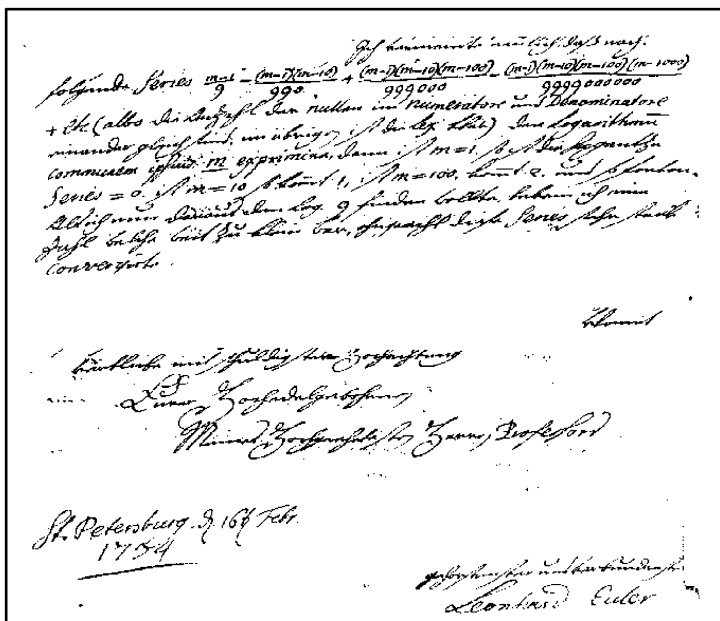 Ich vermeinte neulich daß nach
folgende Series (m-1)/9 - (m-1)(m-10)/990 + (m-1)(m-10)(m-100)/999000 - (m-1)(m-10)(m-100)(m-1000)/9999000000
+ etc (allwo die Anzahl der nullen im Numeratore und Denominatore
einander gleich sind, im übrigen ist der lex klar) den Logarithmum
communem ipsius m exprimire, dann ist m=1, so ist die gantze
Series = 0, ist m=10 so kommt 1, ist m=100, kommt 2. und so fortan.
Als ich nun daraus den Log. 9 finden wollte, bekam ich eine
Zahl welche weit zu klein war, ohngeacht diese Series sehr stark
convergirte.
Womit
mit schuldigster Hochachtung
Eurer Hochedelgebohrnen
Meines Hochgeehrtesten Herrn Professors
St. Petersburg d. 16t Febr.
1734
gehorsamster und verbundenster
Leonhard Euler